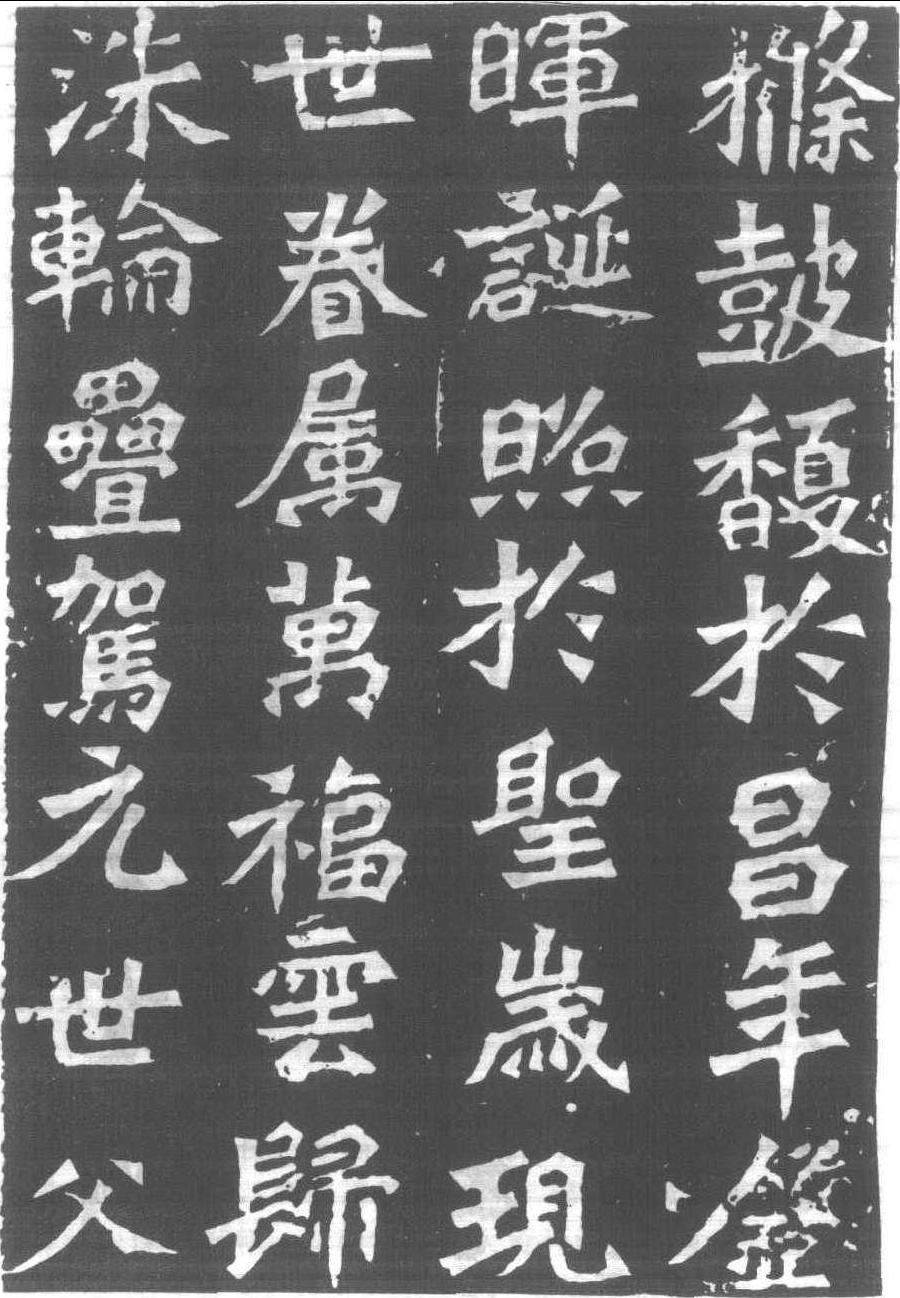 樤鼓馥於昌年鐙
暉誕照於聖歲現
世眷属萬福雲歸
洙輪疊駕元世父